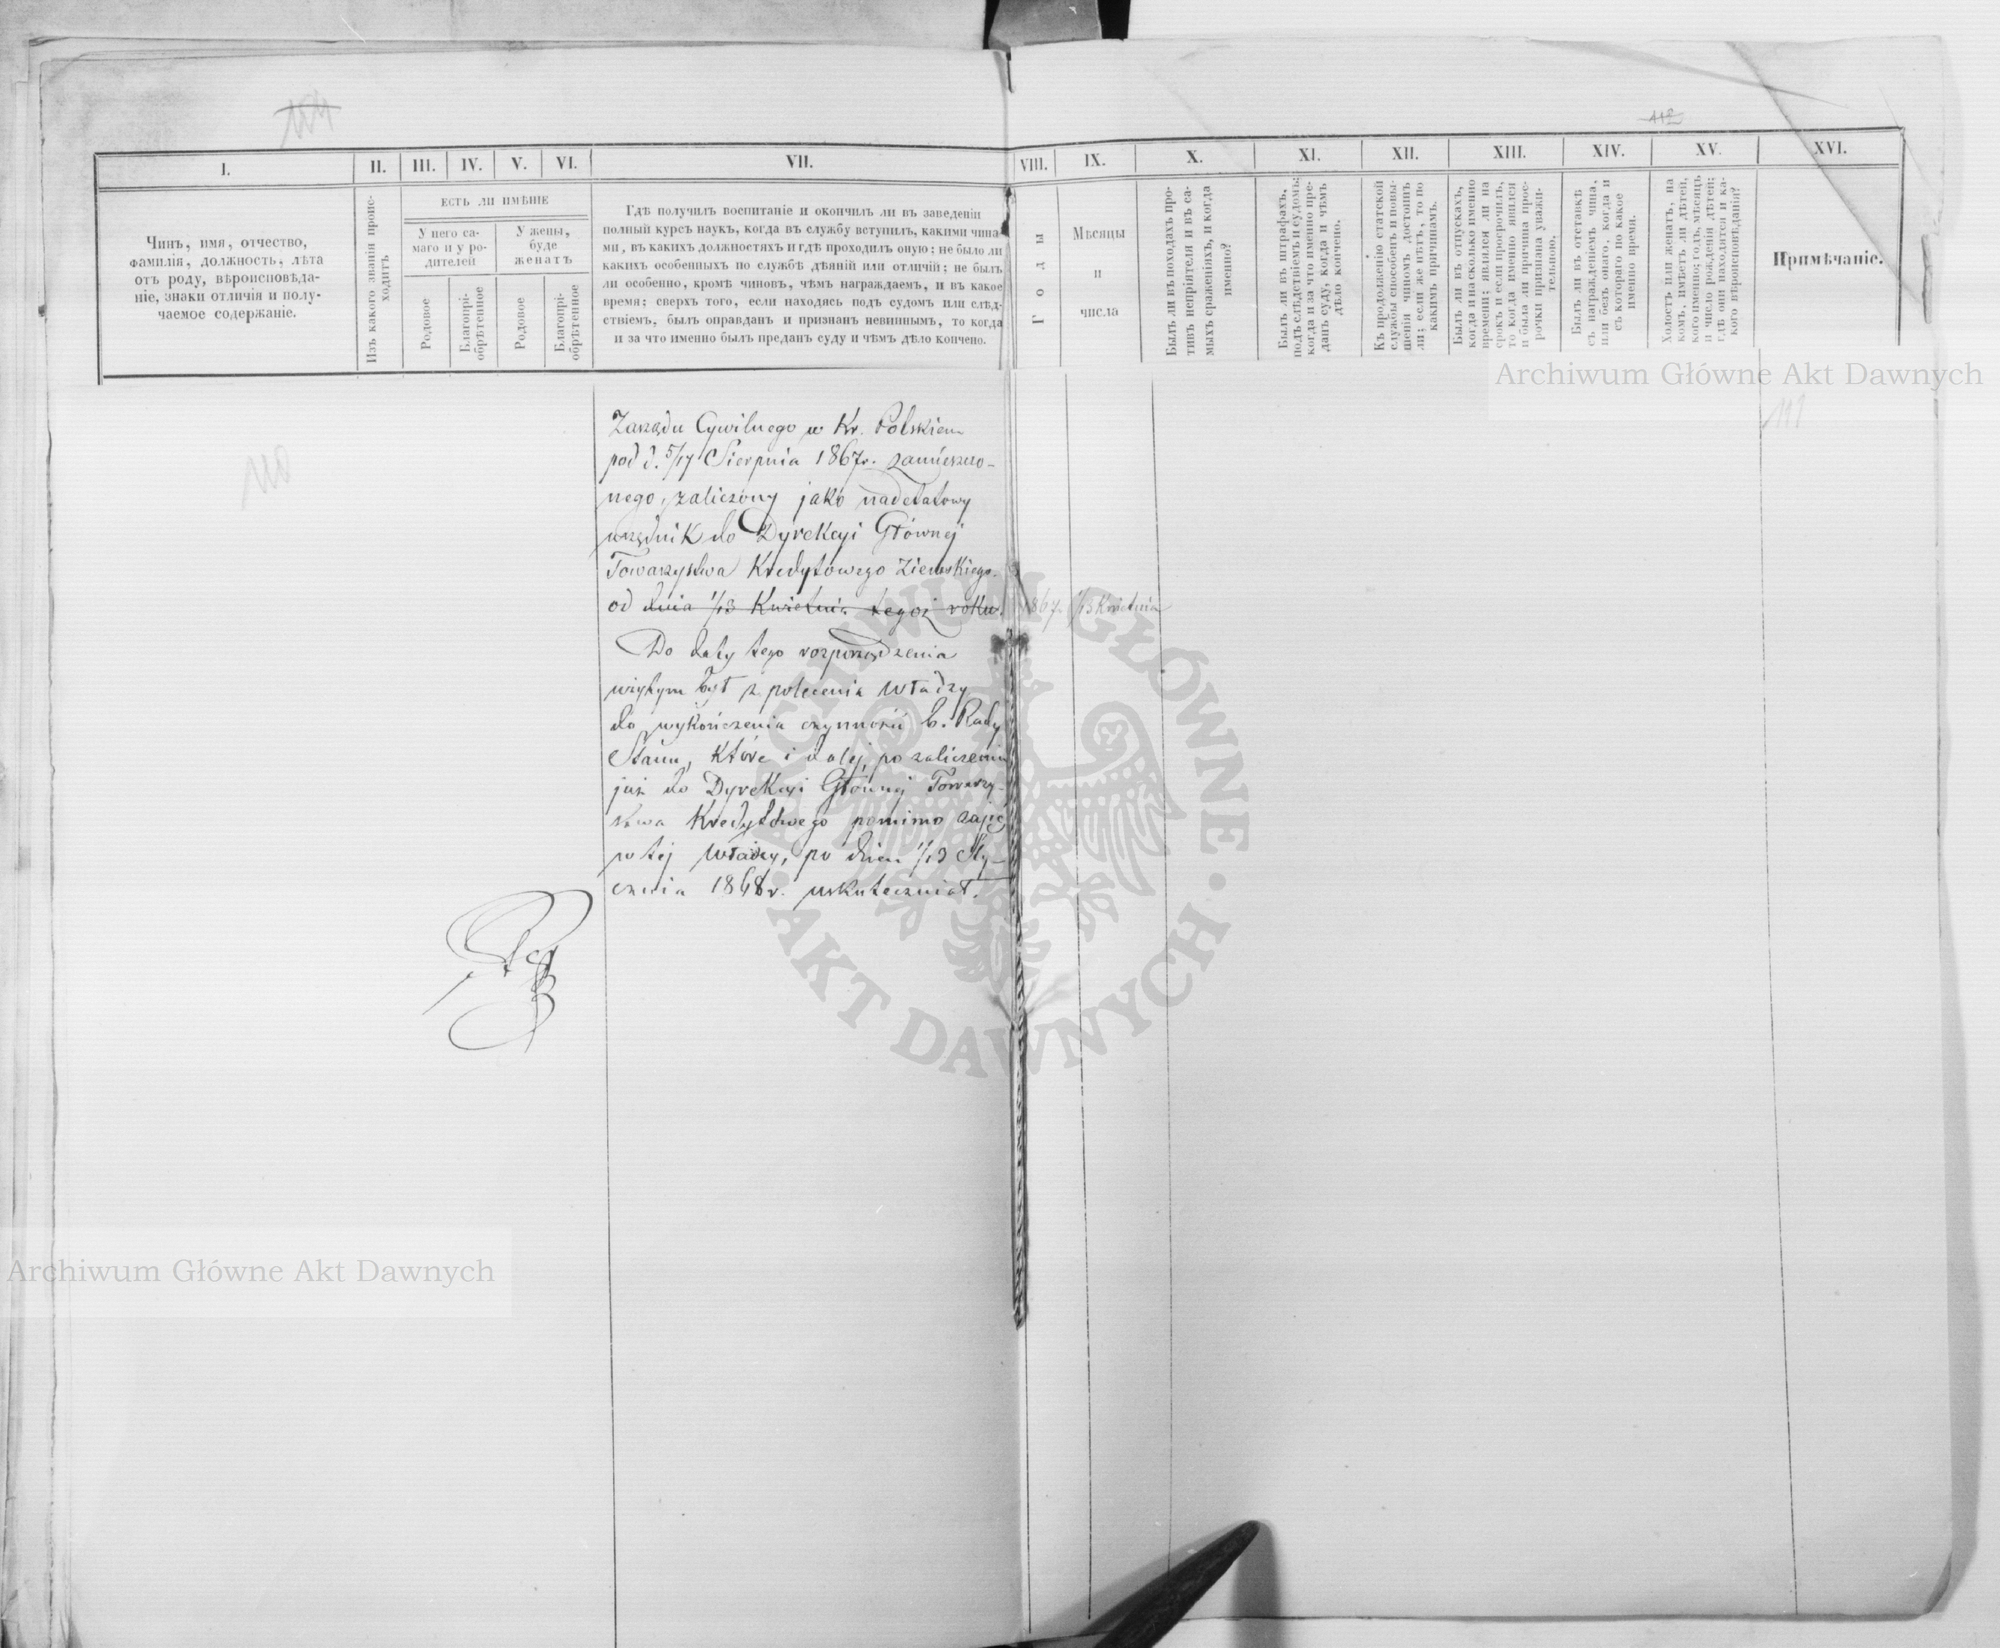 I.
II.
III.
IV.
V.
VI.
VII.
VIII.
IX.
X.
XI.
XII.
XIII.
XIV.
XV.
XVI.
Чинъ, имя, отчество,
фамилія, должность, лѣта
отъ роду, вѣроисповѣда-
ніе, знаки отличія и полу-
чаемое содержаніе.
Изъ какого званія проис-
ходитъ
ЕСТЬ ЛИ ИМѢНІЕ
У него са-
маго и у ро-
дителей
У жены,
буде
женатъ
Родовое
Благопрі-
обрѣтенное
Родовое
Благопрі-
обрѣтенное
Гдѣ получилъ воспитаніе и окончилъ ли въ заведеніи
полный курсъ наукъ, когда въ службу вступилъ, какими чина-
ми, въ какихъ должностяхъ и гдѣ проходилъ оную; не было ли
какихъ особенныхъ по службѣ дѣяній или отличій; не былъ
ли особенно, кромѣ чиновъ, чѣмъ награждаемъ, и въ какое
время; сверхъ того, если находясь подъ судомъ или слѣд-
ствіемъ, былъ оправданъ и признанъ невиннымъ, то когда
и за что именно былъ преданъ суду и чѣмъ дѣло кончено.
Годы
Мѣсяцы
и
числа
Былъ ли въ походахъ про-
тивъ непріятеля и въ са-
мыхъ сраженіяхъ, и когда
именно?
Былъ ли въ штрафахъ,
подъ слѣдствіемъ и судомъ;
когда и за что именно пре-
данъ суду, когда и чѣмъ
дѣло кончено.
Къ продолженію статской
службы способенъ и повы-
шенія чиномъ достоинъ
ли; если же нѣтъ, то по
какимъ причинамъ.
Былъ ли въ отпускахъ,
когда и на сколько именно
времени; являлся ли на
срокъ и если просрочилъ,
то когда именно явился
и была ли причина прос-
рочки признана уважи-
тельною.
Былъ ли въ отставкѣ
съ награжденіемъ чина,
или безъ онаго, когда и
съ котораго по какое
именно время.
Холостъ или женатъ, на
комъ, имѣетъ ли дѣтей,
кого именно; годъ, мѣсяцъ
и число рожденія дѣтей;
гдѣ они находятся и ка-
кого вѣроисповѣданія?
Примѣчаніе.
Zarządu Cywilnego w Kr. Polskiem
pod d. 5/17 Sierpnia 1867r. zamieszczo-
nego, zaliczony jako nadetatowy
urzędnik do Dyrekcyi Głównej
Towarzystwa Kredytowego Ziemskiego
od dnia 1/13 Kwietnia tegoż roku. 1867r. 1/13 Kwietnia
Do daty tego rozporządzenia
użytym był z polecenia Władzy
do wykończenia czynności b. Rady
Stanu, które i dalej, po zaliczeniu
już do Dyrekcyi Głównej Towarzy-
stwa Kredytowego pomimo zajęć
w tej Władzy, po dzień 1/13 Sty-
cznia 1868r. uskuteczniał.
110
111
Archiwum Główne Akt Dawnych
Archiwum Główne Akt Dawnych
ARCHIWUM GŁÓWNE AKT DAWNYCH